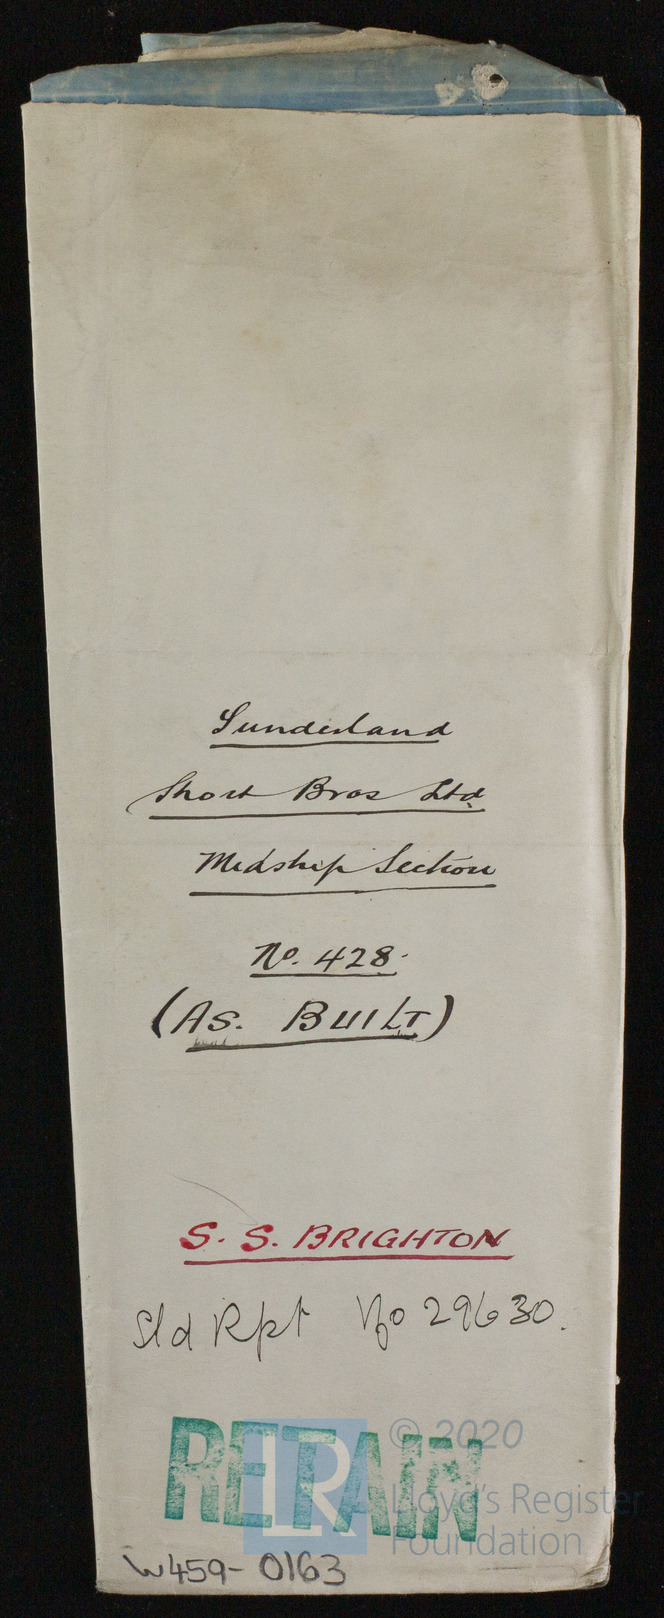 Sunderland
Short Bros Ltd
Midship Section
No. 428.
(AS. BUILT)
S. S. BRIGHTON
Sld Rpt No 29630.
RETAIN
LR
© 2020
Lloyd's Register
Foundation
W459-0163